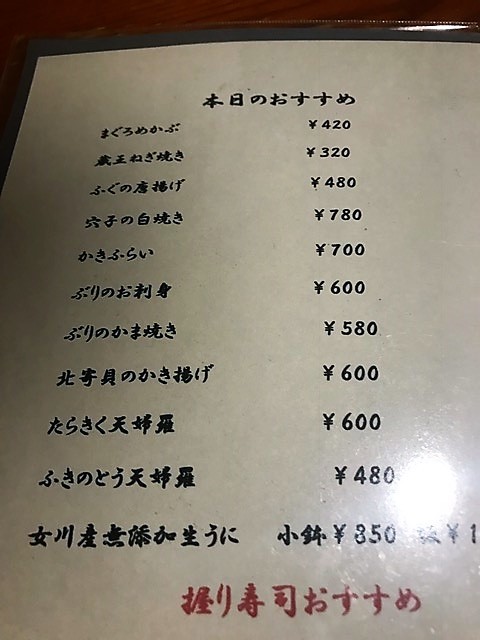 本日のおすすめ
まぐろめかぶ ¥420
蔵王ねぎ焼き ¥320
ふぐの唐揚げ ¥480
穴子の白焼き ¥780
かきふらい ¥700
ぶりのお刺身 ¥600
ぶりのかま焼き ¥580
北寄貝のかき揚げ ¥600
たらきく天婦羅 ¥600
ふきのとう天婦羅 ¥480
女川産無添加生うに 小鉢¥850 ¥1
握り寿司おすすめ